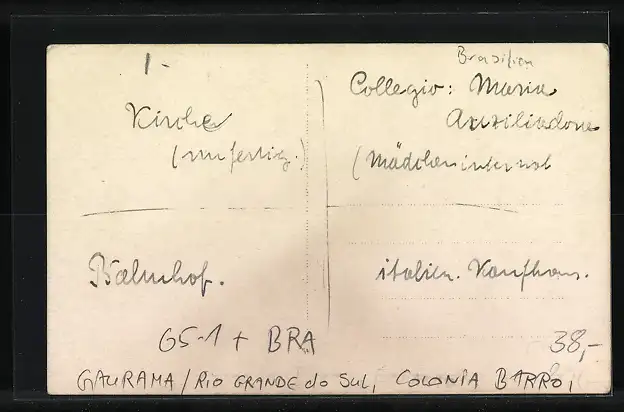 1-
Brasilien
Kirche
(unfertig.)
Collegio: Maria
Auxiliadora
(Mädcheninternat
Bahnhof.
italien. Kaufhaus.
65-1 + BRA
38,-
GAURAMA/RIO GRANDE do SUL, COLONIA BARRO,